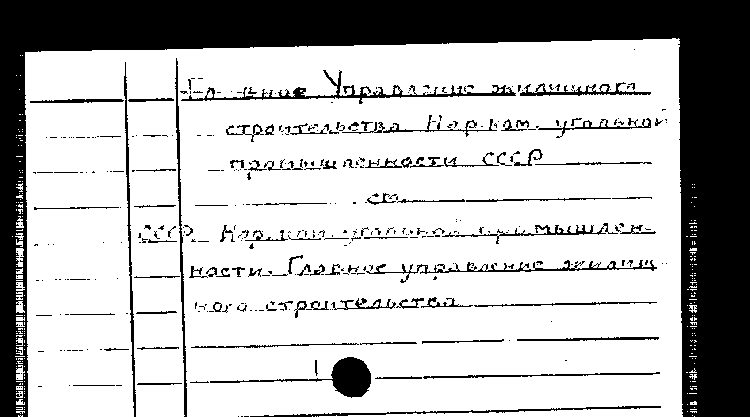 Главное Управление жилищного
строительства Нар.ком. угольной
промышленности СССР
см.
СССР. Нар. ком угольной промышлен-
ности. Главное управление жилищ-
ного строительства